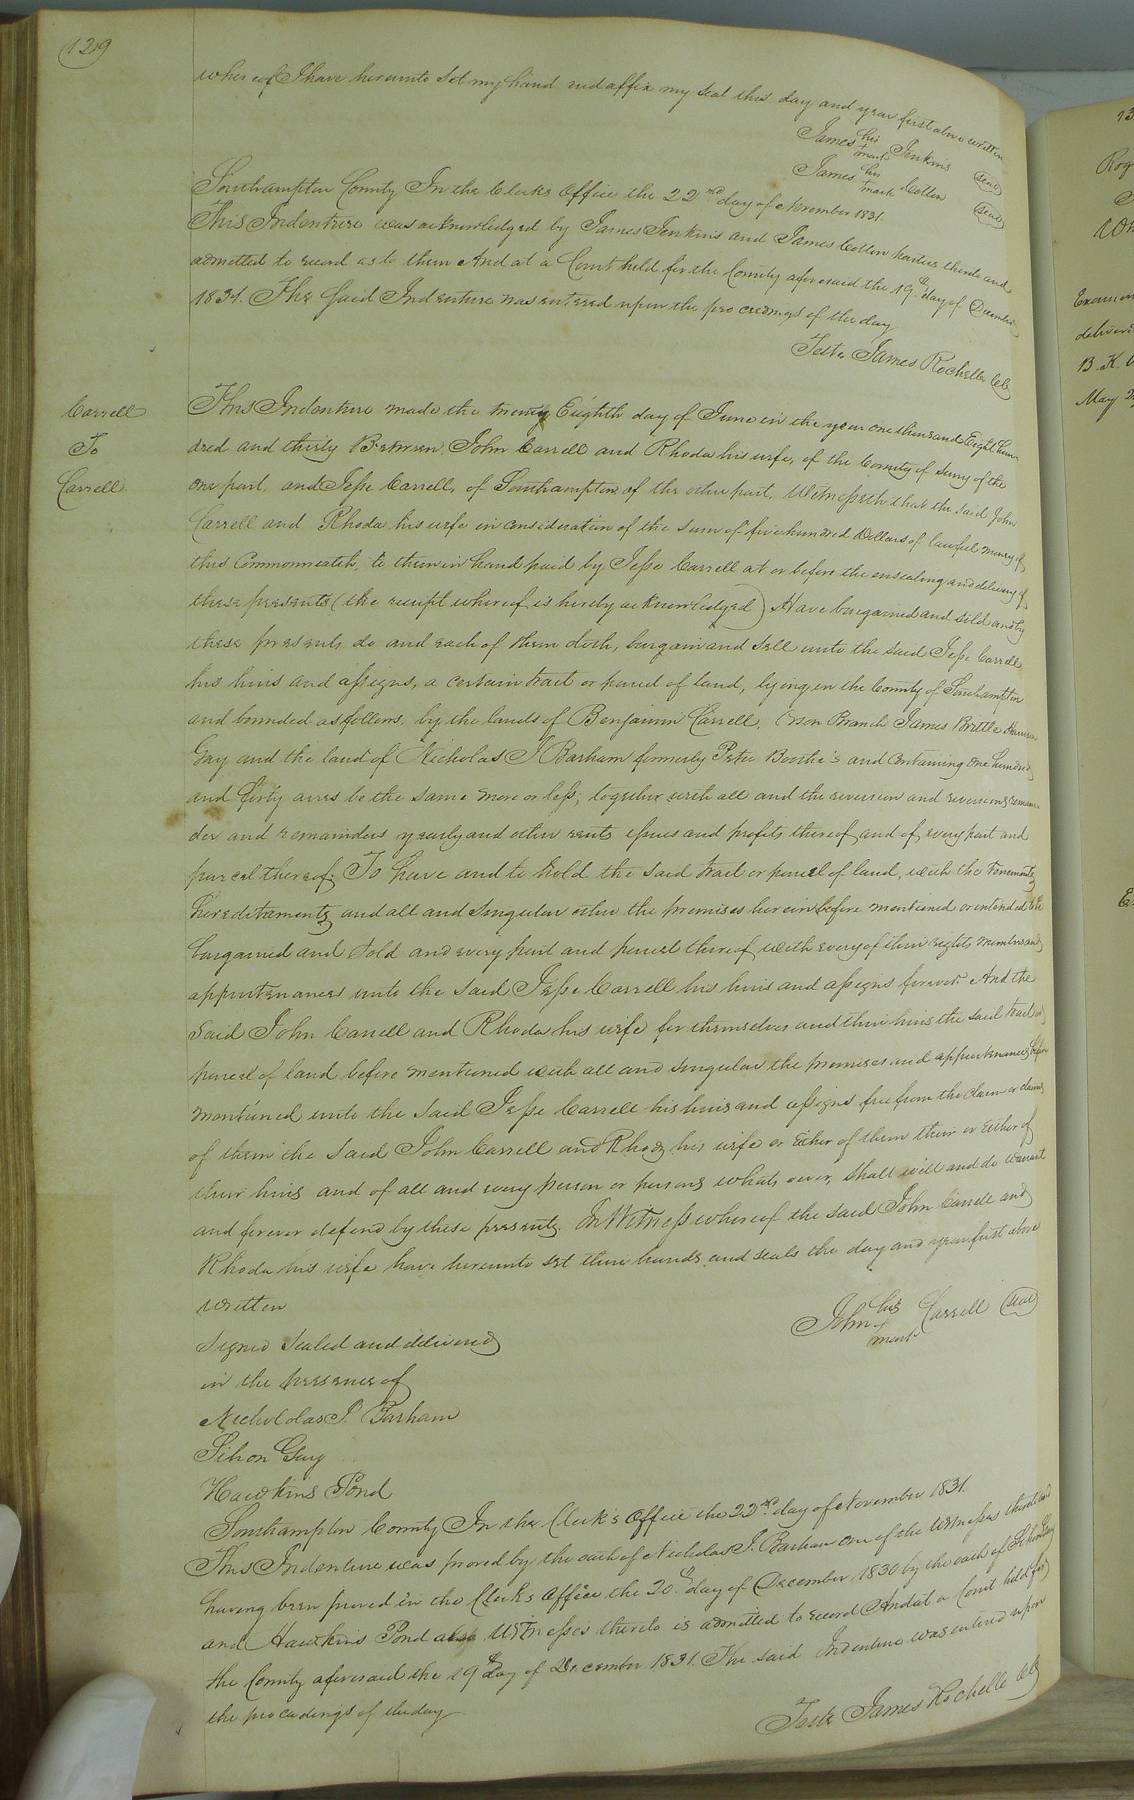 129
whereof I have hereunto Set my hand and affix my seal this day and year first above written
James his mark Jenkins (Seal)
James his mark Cotten (Seal)
Southampton County In the Clerks Office the 22nd day of November 1831.
This Indenture was acknowledged by James Jenkins and James Cotten parties thereto and
admitted to record as to them And at a Court held for the County aforesaid the 19th day of December
1831. The Said Indenture was entered upon the proceedings of the day
Teste James Rochelle
Carrell
To
Carrell
This Indenture made the twenty Eighth day of June in the year one thousand Eight hun
dred and thirty Between John Carrell and Rhoda his wife, of the County of Surry of the
one part, and Jesse Carrell, of Southampton of the other part, Witnesseth that the said John
Carrell and Rhoda his wife in consideration of the sum of five hundred Dollars of lawful money of
this Commonwealth, to them in hand paid by Jesse Carrell at or before the ensealing and delivery of
these presents (the receipt whereof is hereby acknowledged) Have bargained and sold and by
these presents do and each of them doth, bargain and sell unto the said Jesse Carrell
his heirs and assigns, a certain tract or parcel of land, lying in the County of Southampton
and bounded as follows, by the lands of Benjamin Carrell, Branch James Brittle
Gay and the land of Nicholas J Barham formerly Peter Booths and Containing one hundred
and forty acres be the same more or less, together with all and the reversion and reversions remain
der and remainders yearly and other rents issues and profits thereof and of every part and
parcel thereof. To have and to hold the said tract or parcel of land, with the tenements,
hereditaments and all and Singular other the premises herein before mentioned or intended to be
bargained and Sold and every part and parcel thereof with every of their rights members and
appurtenances unto the Said Jesse Carrell his heirs and assigns forever. And the
Said John Carrell and Rhoda his wife for themselves and their heirs the said tract or
parcel of land before mentioned with all and singular the premises and appurtenances before
mentioned unto the Said Jesse Carrell his heirs and assigns free from the claim or claims
of them the Said John Carrell and Rhoda his wife or Either of them their or Either of
their heirs and of all and every person or persons whatsoever, shall will and do warrant
and forever defend by these presents. In Witness whereof the said John Carrell and
Rhoda his wife have hereunto set their hands and seals the day and year first above
written
John his mark Carrell (Seal)
Signed Sealed and delivered
in the presence of
Nicholdas J. Barham
Gay
Hawkins Pond
Southampton County In the Clerk's Office the 22nd day of November 1831.
This Indenture was proved by the oath of Nicholas J. Barham one of the Witnesses thereto and
having been proved in the Clerks Office the 20th day of December 1830 by the oath of
and Hawkins Pond also Witnesses thereto is admitted to record And at a Court held for
the County aforesaid the 19th day of December 1831. The said Indenture was entered upon
the proceedings of the day
Teste James Rochelle